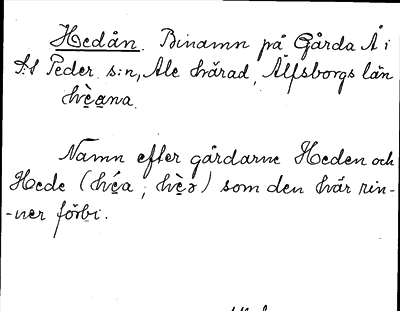 Hedån. Binamn på Gårda Å i
S:t Peder s:n, Ale härad, Älfsborgs län
hè̱a̱na.
Namn efter gårdarne Heden och
Hede (hé̱a; hè̱ə) som den här rin-
-ner förbi.